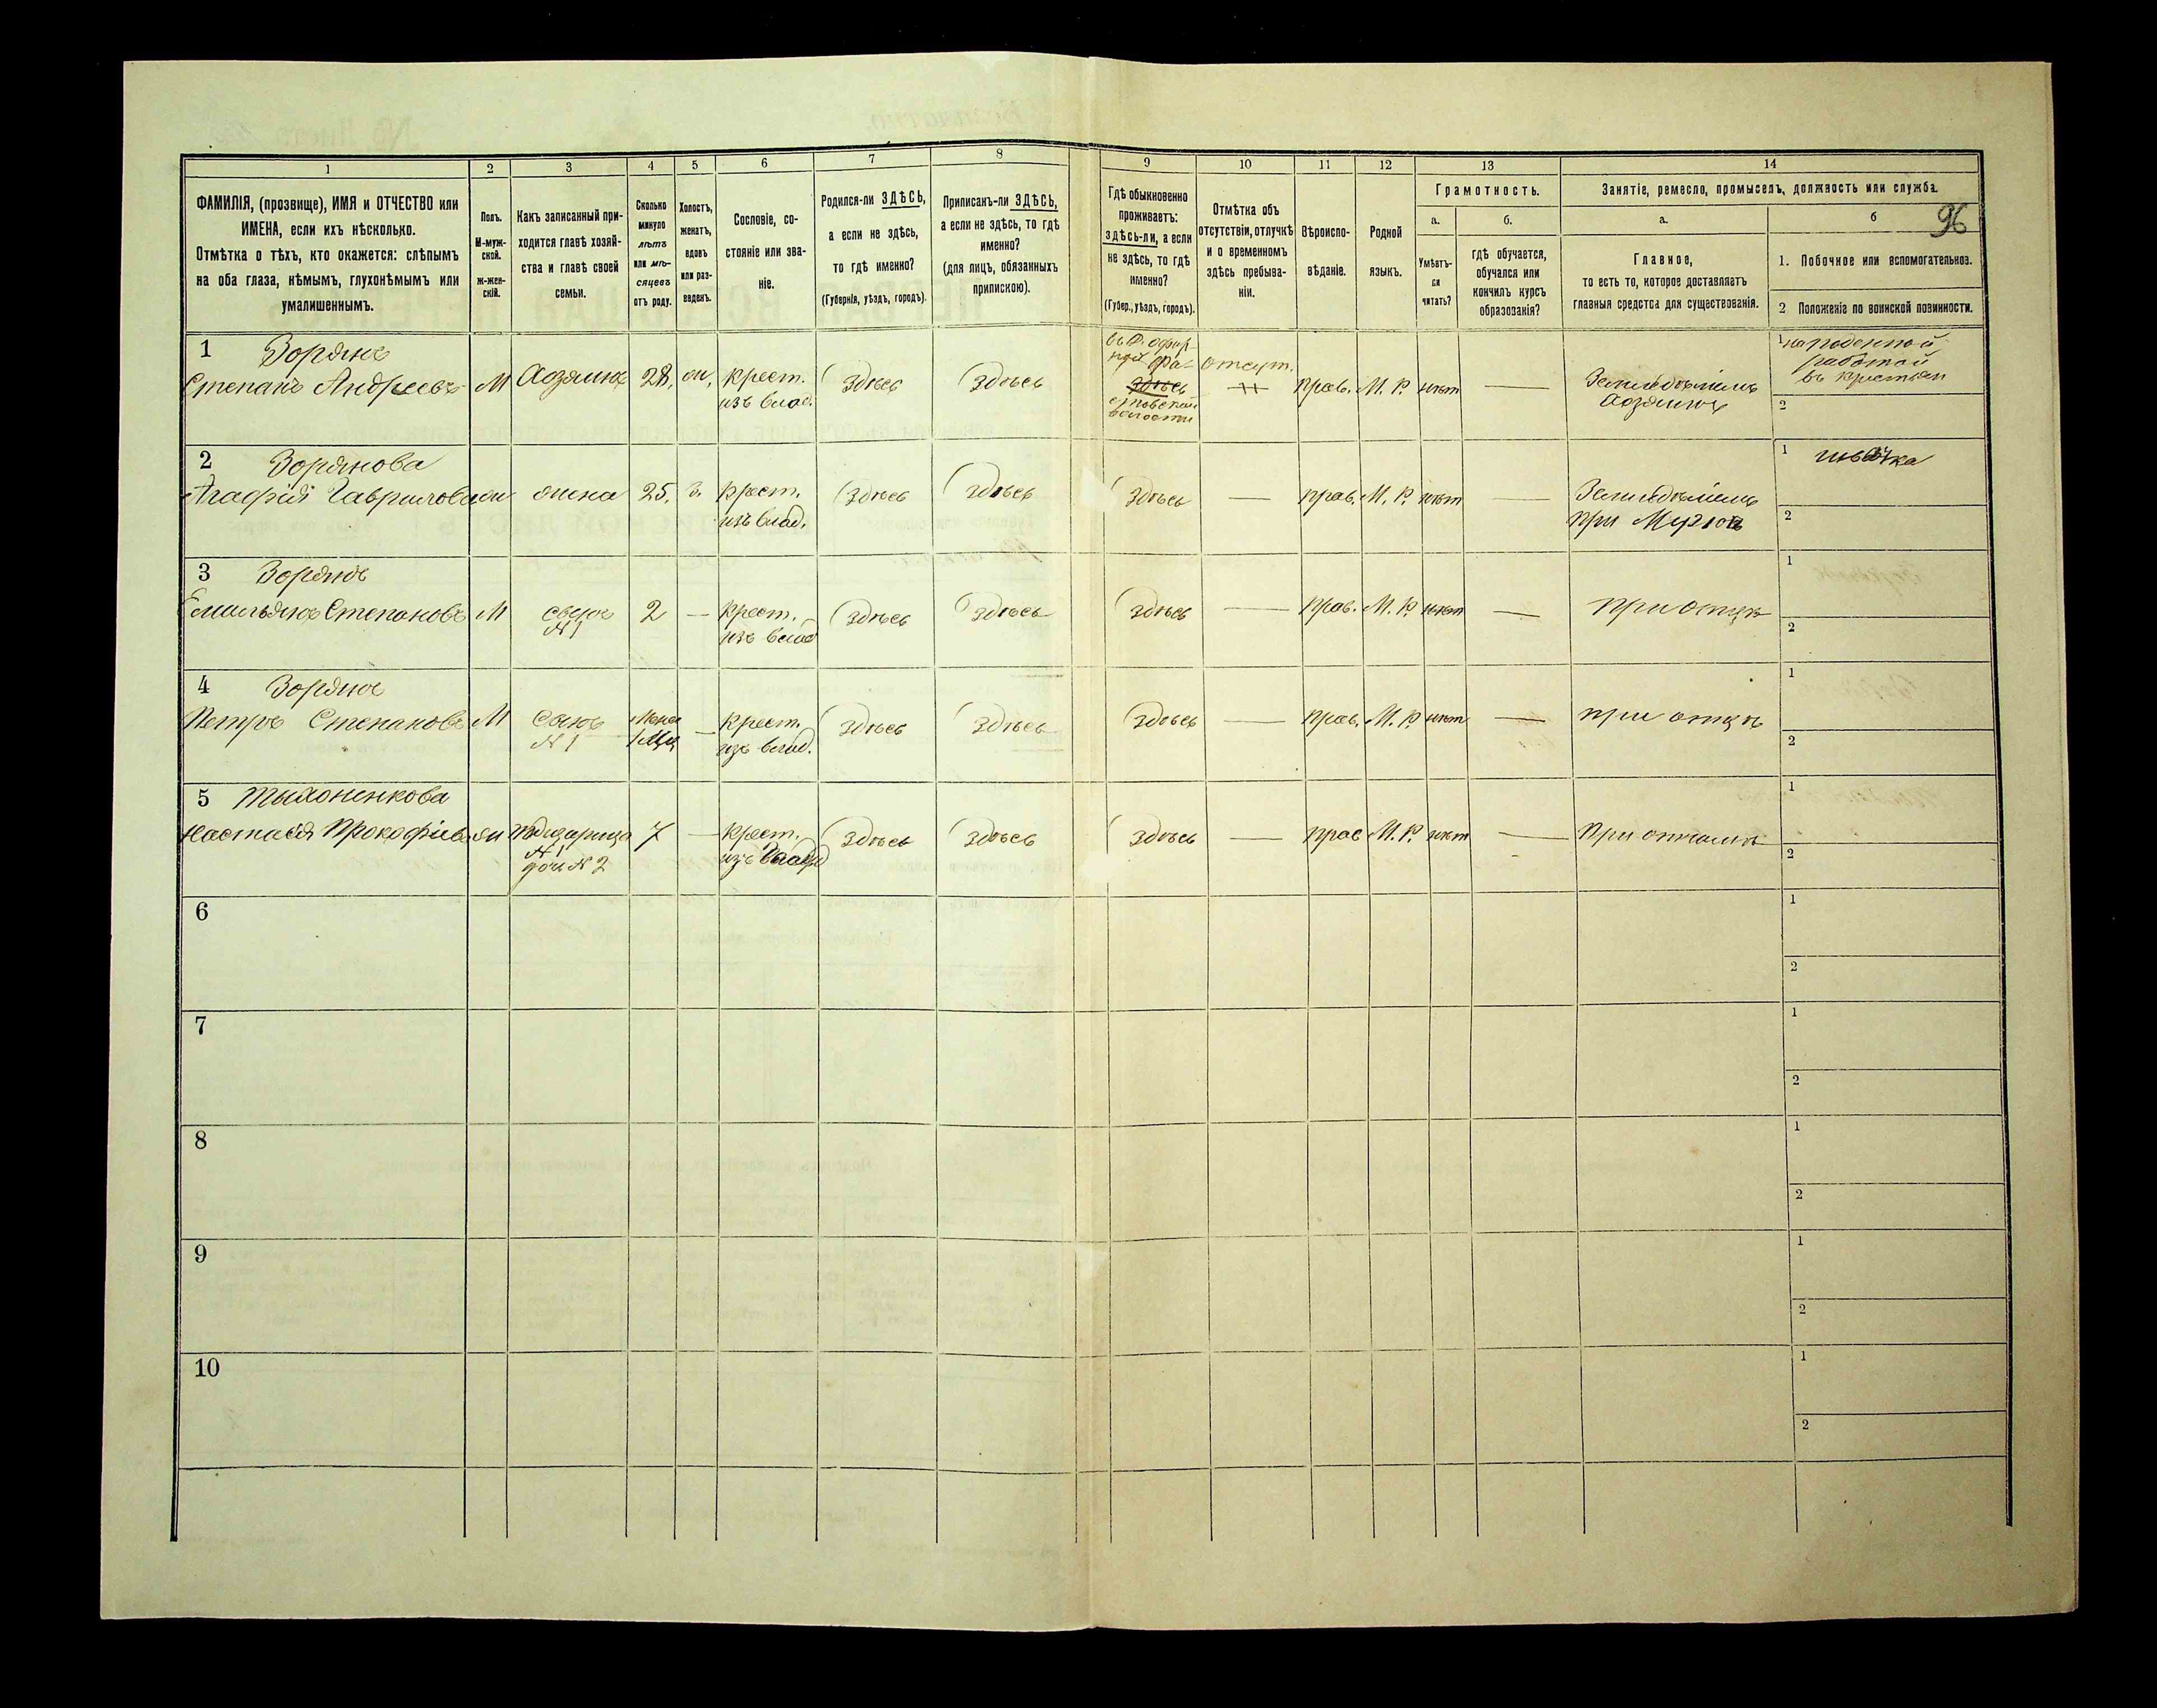 1 2 3 4 5 6 7 8 9 10 11 12 13 14
ФАМИЛІЯ, (прозвище), ИМЯ и ОТЧЕСТВО или
ИМЕНА, если ихъ нѣсколько.
Отмѣтка о тѣхъ, кто окажется: слѣпымъ
на оба глаза, нѣмымъ, глухонѣмымъ или
умалишеннымъ.
Полъ.
М-муж-
ской.
ж-жен-
скій.
Какъ записанный при-
ходится главѣ хозяй-
ства и главѣ своей
семьи.
Сколько
минуло
лѣтъ
или мѣ-
сяцевъ
отъ роду.
Холостъ,
женатъ,
вдовъ
или раз-
веденъ.
Сословіе, со-
стояніе или зва-
ніе.
Родился-ли ЗДѢСЬ,
а если не здѣсь,
то гдѣ именно?
(Губернія, уѣздъ, городъ).
Приписанъ-ли ЗДѢСЬ,
а если не здѣсь, то гдѣ
именно?
(для лицъ, обязанныхъ
припискою).
Гдѣ обыкновенно
проживаетъ:
здѣсь-ли, а если
не здѣсь, то гдѣ
именно?
(Губер., уѣздъ, городъ).
Отмѣтка объ
отсутствіи, отлучкѣ
и о временномъ
здѣсь пребыва-
ніи.
Вѣроиспо-
вѣданіе.
Родной
языкъ.
Грамотность.
а. б.
Умѣетъ-
ли
читать?
гдѣ обучается,
обучался или
кончилъ курсъ
образованія?
Занятіе, ремесло, промыселъ, должность или служба.
а. б
96
Главное,
то есть то, которое доставляетъ
главныя средства для существованія.
1. Побочное или вспомогательноe.
2 Положеніе по воинской повинности.
1 Зорянъ
Степанъ Андреевъ М Хозяинъ 28, ж, крест.
изъ влад.
здѣсь здѣсь
здѣсь
волости
отсут.
прав. М. Р. нѣт —
Земледѣлецъ
Хозяинъ
1 поденной
работой
2
2 Зорянова
Агафія Гаврилова ж жена 25. з. крест.
изъ влад.
здѣсь здѣсь здѣсь — прав. М. Р. нѣт —
Земледѣлецъ
при Мужѣ
1 швачка
2
3 Зорянъ
Емильянъ Степановъ М сынъ 2 — крест.
N 1 изъ влад
здѣсь здѣсь здѣсь — прав. М. Р. нѣт — при отцѣ
1
2
4 Зорянъ
Петръ Степановъ М сынъ Менее — крест.
N 1 1 Мца изъ влад.
здѣсь здѣсь здѣсь — прав. М. Р. нѣт — при отцѣ
1
2
5 Тыхоненкова
Настасія Прокофіева ж Подчарица 7 — крест.
N 1 изъ
доч N 2
здѣсь здѣсь здѣсь — прав М. Р. нѣт — При отчимѣ
1
2
6
1
2
7
1
2
8
1
2
9
1
2
10
1
2